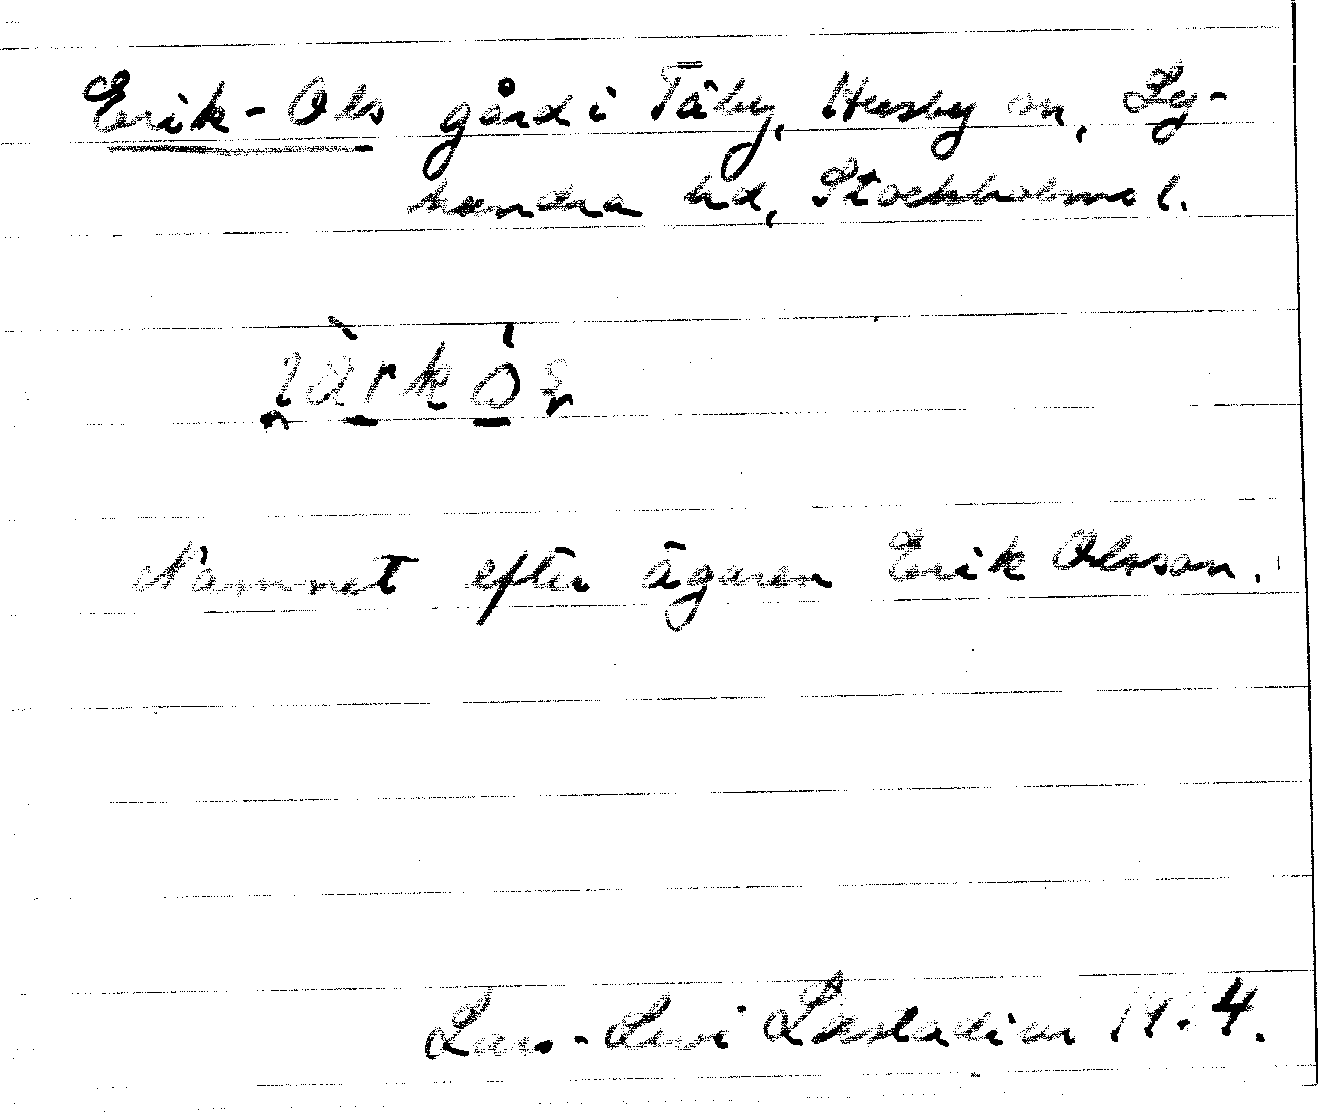 Erik-Ols gård i Täby, Husby sn, Ly-
hundra hd, Stockholms l.
Namnet efter ägaren Erik Olsson.
Lars-Levi Læstadius